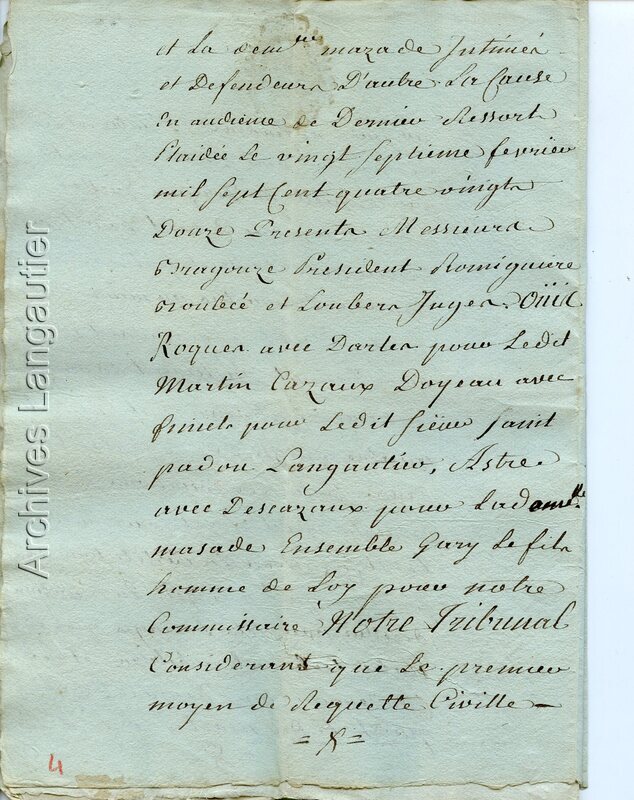 et La dem.lle mazade Intimés
et Defendeurs D'autre La Cause
En audience de Dernier Ressort
Plaidée Le vingt Septieme fevrier
mil Sept Cent quatre vingts
Douze Presents Messieurs
Bragouze President Romiguiere
et Loubers Juges. Oüis
Roques avec Darles pour Ledit
Martin Cazaux Doyeau avec
pour Ledit Sieur Saint
padou Langautier, Astre
avec Descazaux pour Ladamlle
masade Ensemble Gary Le fils
homme de Loy pour notre
Commissaire Notre Tribunal
Considerant que Le premier
moyen de Requette Civille —
4
Archives Langautier